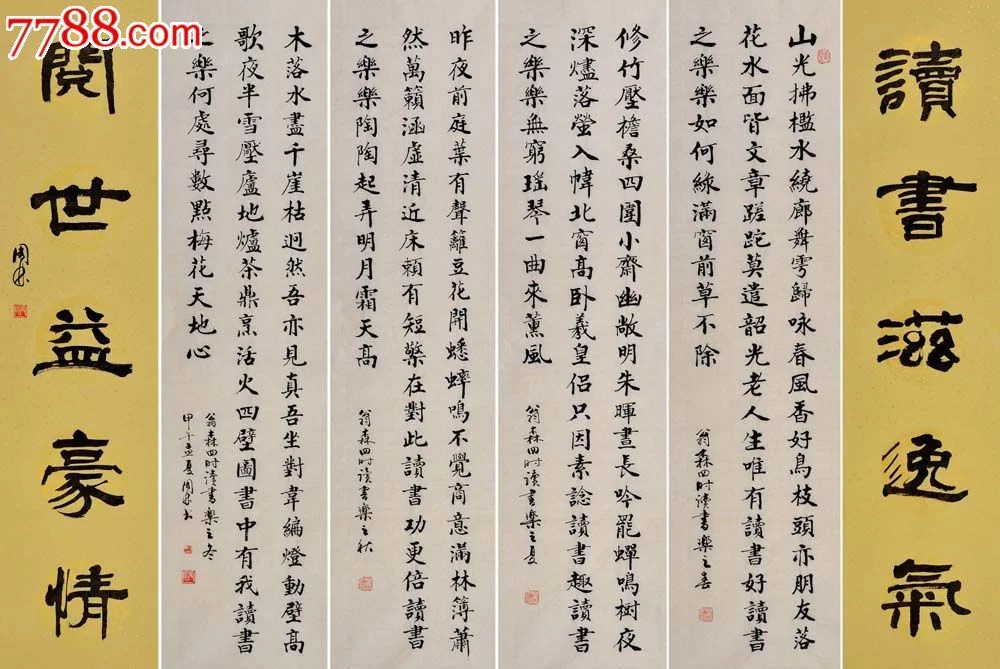 7788.com
讀書滋逸氣
山光拂檻水繞廊舞雩歸咏春風香好鳥枝頭亦朋友落
花水面皆文章蹉跎莫遣韶光老人生唯有讀書好讀書
之樂樂如何綠滿窗前草不除
翁森四时读書樂之春
修竹壓檐桑四圍小齋幽敞明朱暉晝長吟罷蟬鳴樹夜
深燼落螢入幃北窗高卧羲皇侶只因素諗讀書趣讀書
之樂樂無窮瑤琴一曲來薰風
翁森四时读書樂之夏
昨夜前庭葉有聲籬豆花開蟋蟀鳴不覺商意滿林簿蕭
然萬籟涵虛清近床賴有短檠在對此讀書功更倍讀書
之樂樂陶陶起弄明月霜天高
翁森四时读書樂之秋
木落水盡千崖枯迥然吾亦見真吾坐對韋編燈動壁高
歌夜半雪壓廬地爐茶鼎烹活火四壁圖書中有我讀書
之樂何處尋數點梅花天地心
翁森四时读書樂之冬
甲午孟夏周
閱世益豪情
周